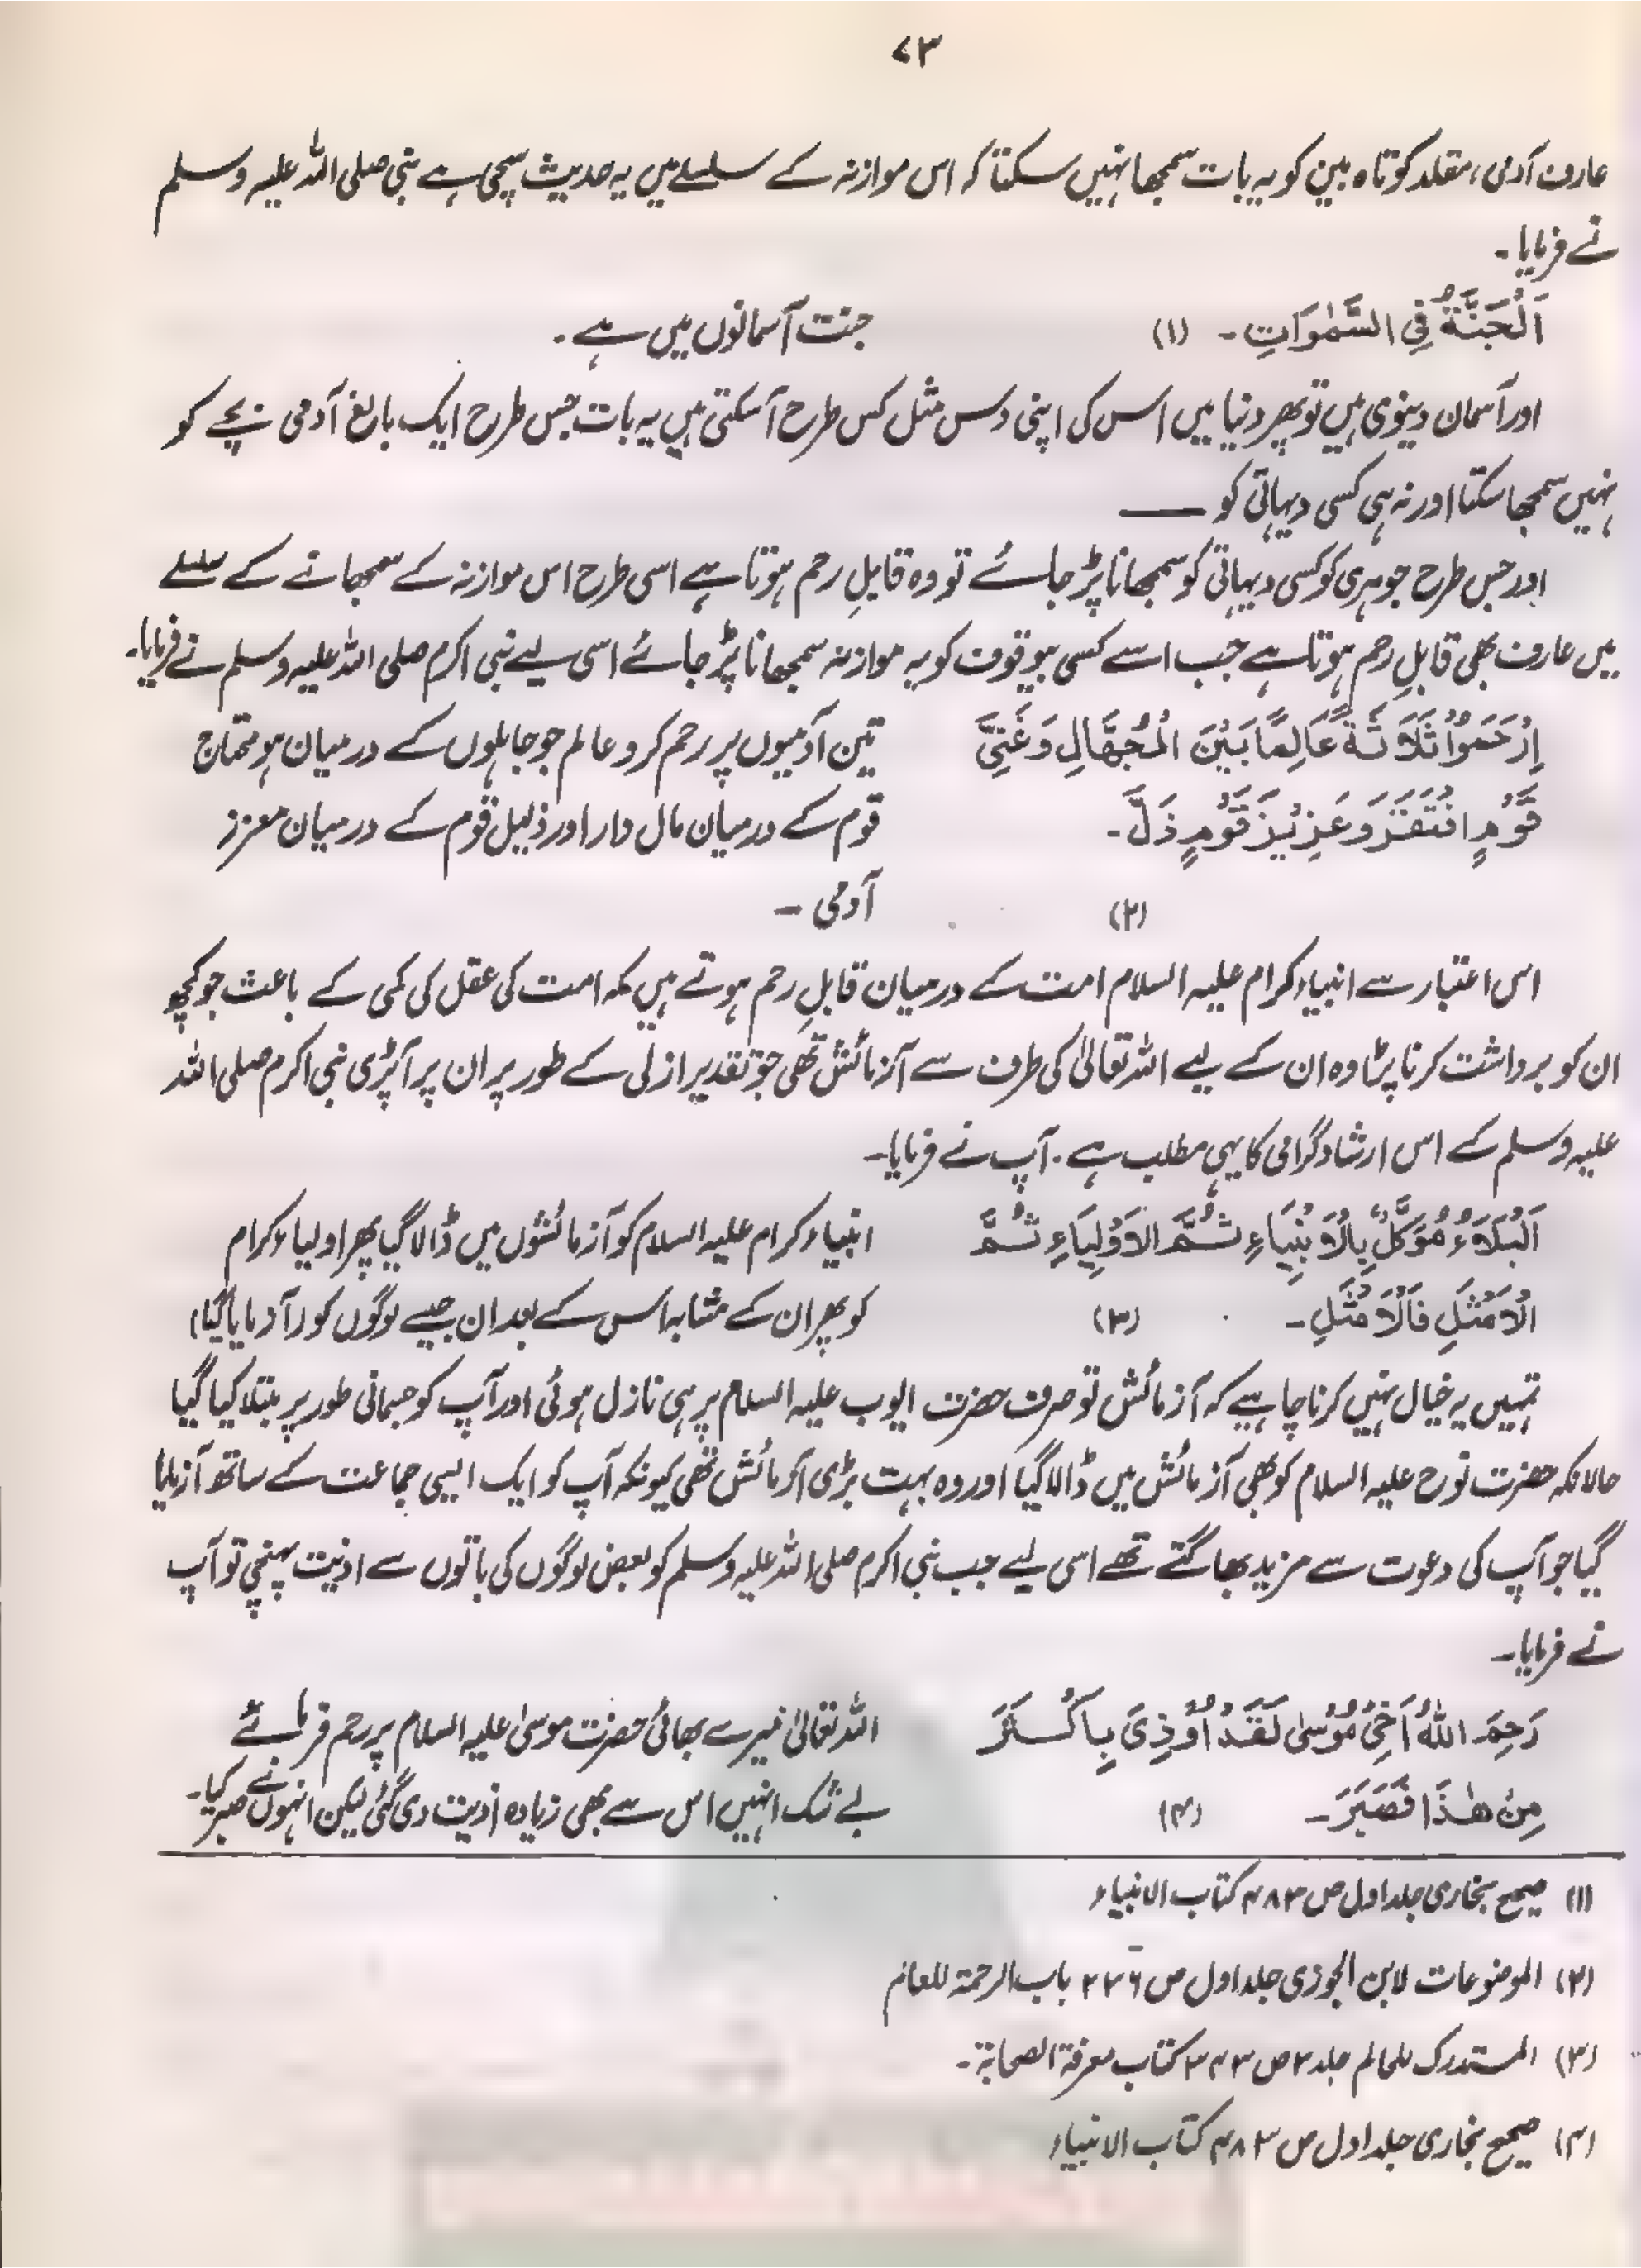 ۷۳
عارف آدمی، مقلد کوتاہ بین کو یہ بات سمجھا نہیں سکتا کہ اس موازنہ کے سلسلے میں یہ حدیث سچی ہے نبی صلی اللہ علیہ وسلم
نے فرمایا۔
اَلْجَنَّةُ فِی السَّمٰوَاتِ۔ (۱) جنت آسمانوں میں ہے۔
اور آسمان دینوی ہیں تو پھر دنیا میں اس کی اپنی دس مثل کس طرح آ سکتی ہیں یہ بات جس طرح ایک بالغ آدمی بچے کو
نہیں سمجھا سکتا اور نہ ہی کسی دیہاتی کو ——
اور جس طرح جوہری کو کسی دیہاتی کو سمجھانا پڑ جائے تو وہ قابلِ رحم ہوتا ہے اسی طرح اس موازنہ کے سمجھانے کے سلسلے
میں عارف بھی قابلِ رحم ہوتا ہے جب اسے کسی بیوقوف کو یہ موازنہ سمجھانا پڑ جائے اسی لیے نبی اکرم صلی اللہ علیہ وسلم نے فرمایا۔
اِرْحَمُوْا ثَلَاثَةً عَالِمًا بَيْنَ الْجُهَّالِ وَغَنِيَّ تین آدمیوں پر رحم کرو عالم جو جاہلوں کے درمیان ہو محتاج
قَوْمٍ افْتَقَرَ وَعَزِيْزَ قَوْمٍ ذَلَّ۔ قوم کے درمیان مال دار اور ذلیل قوم کے درمیان معزز
(۲) آدمی۔
اس اعتبار سے انبیاء کرام علیہ السلام امت کے درمیان قابلِ رحم ہوتے ہیں کہ امت کی عقل کی کمی کے باعث جو کچھ
ان کو برداشت کرنا پڑا وہ ان کے لیے اللہ تعالیٰ کی طرف سے آزمائش تھی جو تقدیر ازلی کے طور پر ان پر آ پڑی نبی اکرم صلی اللہ
علیہ وسلم کے اس ارشاد گرامی کا یہی مطلب ہے۔ آپ نے فرمایا۔
اَلْبَلَاءُ مُوَكَّلٌ بِالْاَنْبِيَاءِ ثُمَّ الْاَوْلِيَاءِ ثُمَّ انبیاء کرام علیہ السلام کو آزمائشوں میں ڈالا گیا پھر اولیاء کرام
الْاَمْثَلِ فَالْاَمْثَلِ۔ (۳) کو پھر ان کے مشابہ اس کے بعد ان جیسے لوگوں کو (آزمایا گیا)
تمہیں یہ خیال نہیں کرنا چاہیے کہ آزمائش تو صرف حضرت ایوب علیہ السلام پر ہی نازل ہوئی اور آپ کو جسمانی طور پر مبتلا کیا گیا
حالانکہ حضرت نوح علیہ السلام کو بھی آزمائش میں ڈالا گیا اور وہ بہت بڑی آزمائش تھی کیونکہ آپ کو ایک ایسی جماعت کے ساتھ آزمایا
گیا جو آپ کی دعوت سے مزید بھاگتے تھے اسی لیے جب نبی اکرم صلی اللہ علیہ وسلم کو بعض لوگوں کی باتوں سے اذیت پہنچی تو آپ
نے فرمایا۔
رَحِمَ اللّٰهُ اَخِیْ مُوْسٰی لَقَدْ اُوْذِیَ بِاَكْثَرَ اللہ تعالیٰ میرے بھائی حضرت موسیٰ علیہ السلام پر رحم فرمائے
مِنْ هٰذَا فَصَبَرَ۔ (۴) بے شک انہیں اس سے بھی زیادہ اذیت دی گئی لیکن انہوں نے صبر کیا۔
(۱) صحیح بخاری جلد اول ص ۴۸۳ کتاب الانبیاء
(۲) الموضوعات لابن الجوزی جلد اول ص ۲۳۶ باب الرحمۃ للعالم
(۳) المستدرک للحاکم جلد ۳ ص ۳۴۳ کتاب معرفۃ الصحابۃ۔
(۴) صحیح بخاری جلد اول ص ۴۸۳ کتاب الانبیاء